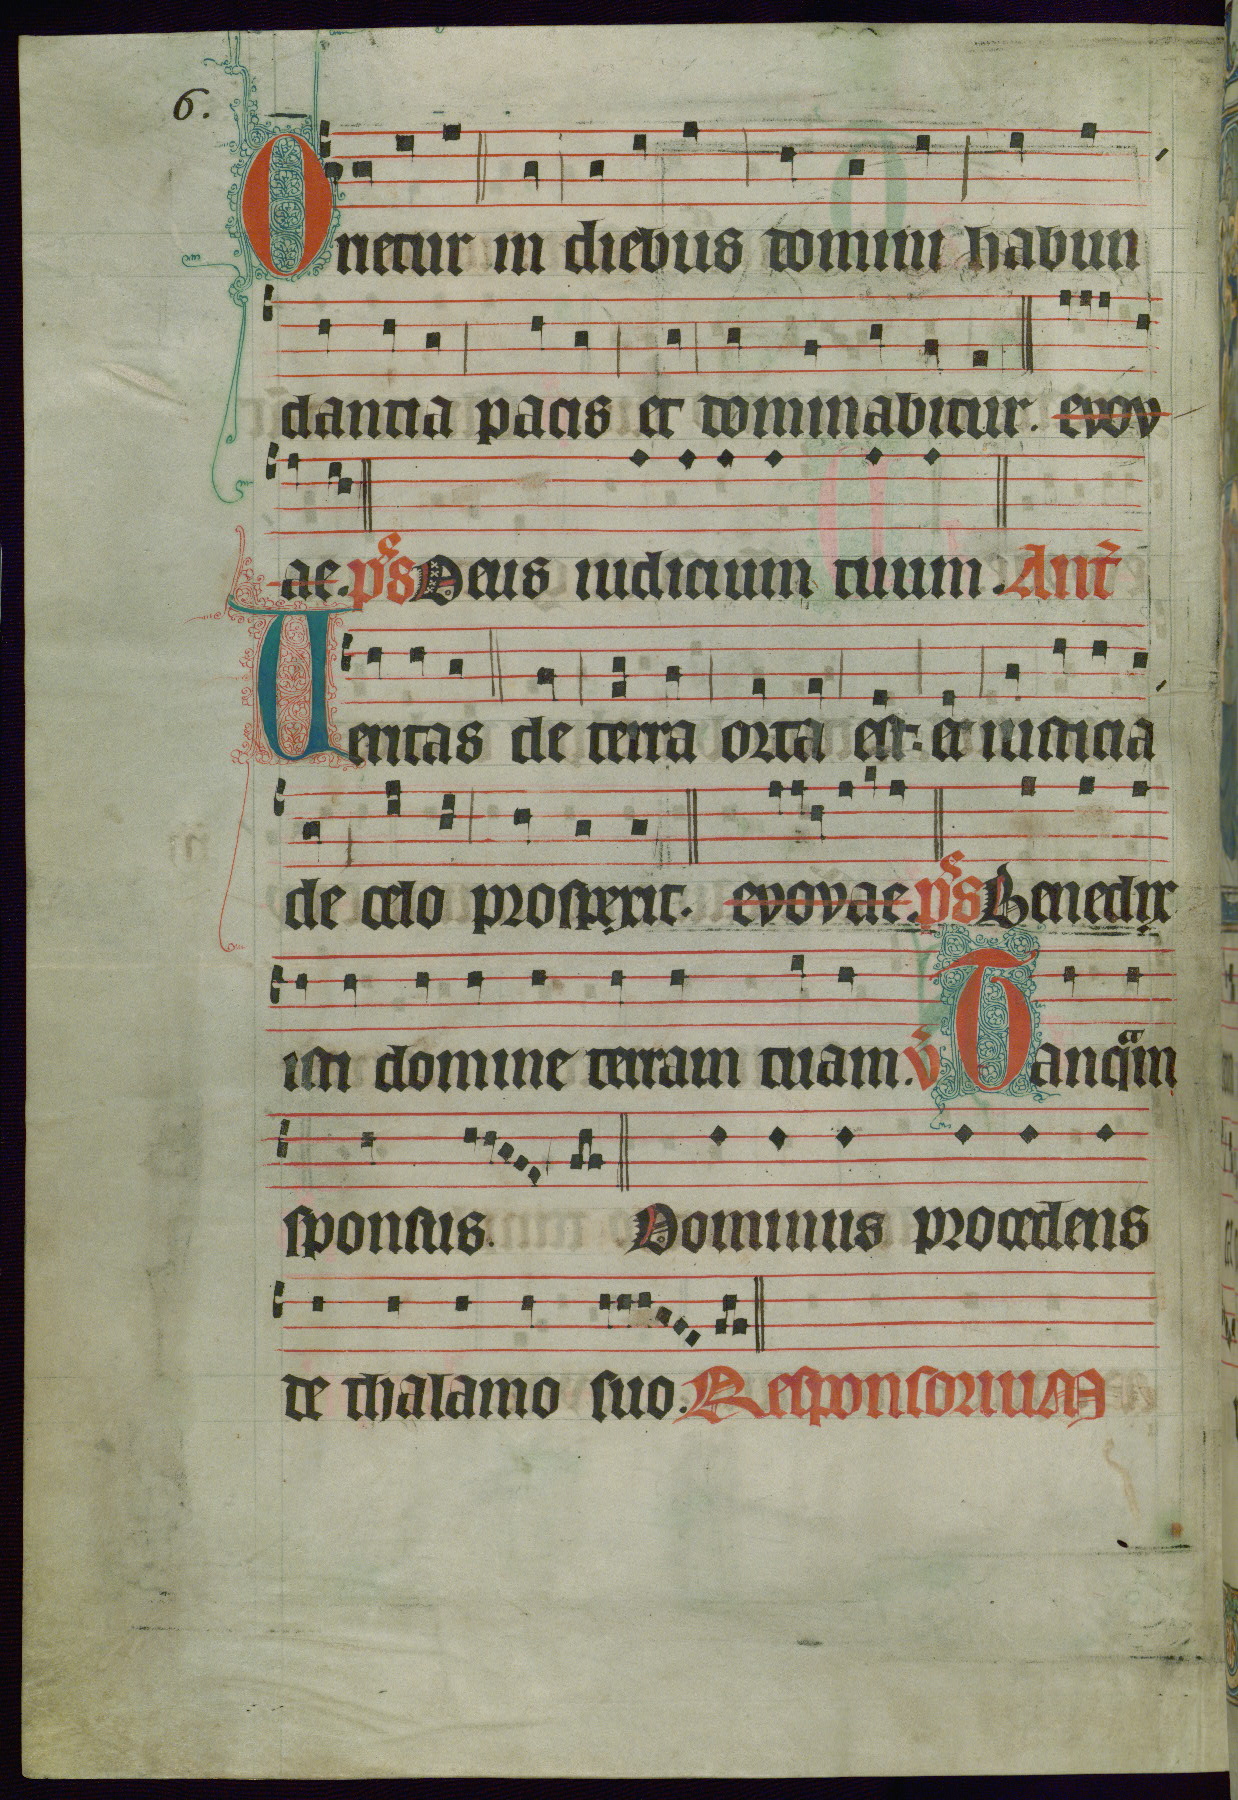 6.
Orietur in diebus domini habun
dantia pacis et dominabitur. evov
ae. ps Deus iudicium tuum. Ant
Ueritas de terra orta est: et iusticia
de celo prospexit. evovae. ps Benedix
isti domine terram tuam. V Tanqam
sponsus. Dominus procedens
de thalamo suo. Responsorium